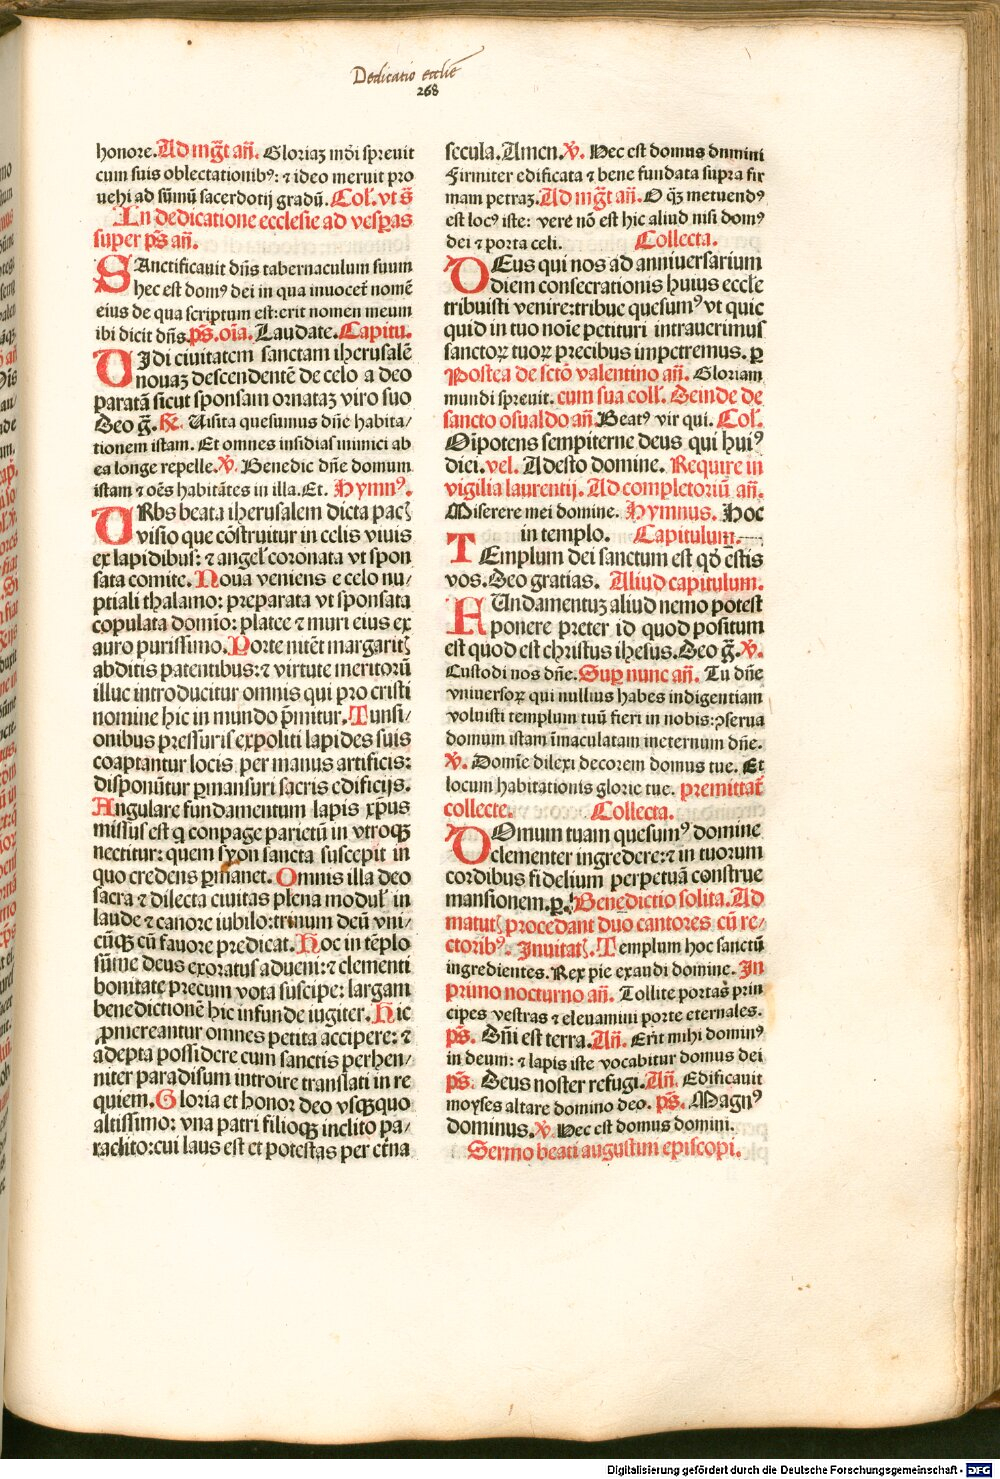 Dedicatio eccl̄ie
268
honore. Ad mg̃t añ. Gloriaꝫ mõi spreuit
cum suis oblectationibꝰ: ⁊ ideo meruit pro
uehi ad sũmũ sacerdotij gradũ. Col. vt s̃
In dedicatione ecclesie ad vesꝑas
super ps̃ añ.
SAnctificauit dñs tabernaculum suum
hec est domꝰ dei in qua inuocet̃ nomẽ
eius de qua scriptum est: erit nomen meum
ibi dicit dñs. ps̃. oĩa. Laudate. Capitu.
VIdi ciuitatem sanctam iherusalẽ
nouaꝫ descendentẽ de celo a deo
paratã sicut sponsam ornataꝫ viro suo
Deo g̃. R̃. Uisita quesumus dñe habita/
tionem istam. Et omnes insidias inimici ab
ea longe repelle. V̾. Benedic dñe domum
istam ⁊ oẽs habitãtes in illa. Et. Hymnꝰ.
URbs beata iherusalem dicta pacꝭ
visio que cõstruitur in celis viuis
ex lapidibus: ⁊ angel̃ coronata vt spon
sata comite. Noua veniens e celo nu/
ptiali thalamo: preparata vt sponsata
copulata domĩo: platee ⁊ muri eius ex
auro purissimo. Porte nitẽt margaritꝭ
abditis patentibus: ⁊ virtute meritorũ
illuc introducitur omnis qui pro cristi
nomine hic in mundo p̃mitur. Tunsi/
onibus pressuris expoliti lapides suis
coaptantur locis per manus artificis:
disponũtur ꝑmansuri sacris edificijs.
Angulare fundamentum lapis xp̃us
missus est q̃ conpage parietũ in vtroqꝫ
nectitur: quem syon sancta suscepit in
quo credens ꝑmanet. Omnis illa deo
sacra ⁊ dilecta ciuitas plena modul̃ in
laude ⁊ canore iubilo: trinum deũ vni/
cũqꝫ cũ fauore predicat. Hoc in tẽplo
sũme deus exoratus adueni: ⁊ clementi
bonitate precum vota suscipe: largam
benedictionẽ hic infunde iugiter. Hic
ꝓmereantur omnes petita accipere: ⁊
adepta possidere cum sanctis perhen/
niter paradisum introire translati in re
quiem. Gloria et honor deo vsqꝫquo
altissimo: vna patri filioqꝫ inclito pa/
raclito: cui laus est et potestas per et̃na
secula. Amen. V̾. Hec est domus domini
Firmiter edificata ⁊ bene fundata supra fir
mam petraꝫ. Ad mg̃t añ. O qꝫ metuendꝰ
est locꝰ iste: vere nõ est hic aliud nisi domꝰ
dei ⁊ porta celi. Collecta.
DEus qui nos ad anniuersarium
diem consecrationis huius eccle
tribuisti venire: tribue quesumꝰ vt quic
quid in tuo noĩe petituri intrauerimus
sanctoꝝ tuoꝝ precibus impetremus. ꝑ
Postea de sctõ valentino añ. Gloriam
mundi spreuit. cum sua coll̃. Deinde de
sancto osualdo añ. Beatꝰ vir qui. Col̃.
Oĩpotens sempiterne deus qui huiꝰ
diei. vel. Adesto domine. Require in
vigilia laurentij. Ad completoriũ añ.
Miserere mei domine. Hymnus. Hoc
in templo. Capitulum.
TEmplum dei sanctum est qđ estis
vos. Deo gratias. Aliud capitulum.
FUndamentuꝫ aliud nemo potest
ponere preter id quod positum
est quod est christus ihesus. Deo g̃. V̾.
Custodi nos dñe. Suꝑ nunc añ. Tu dñe
vniuersoꝝ qui nullius habes indigentiam
voluisti templum tuũ fieri in nobis: ꝯserua
domum istam ĩmaculatam ineternum dñe.
V̾. Domĩe dilexi decorem domus tue. Et
locum habitationis glorie tue. premittat̃
collecte. Collecta.
DOmum tuam quesumꝰ domine
clementer ingredere: ⁊ in tuorum
cordibus fidelium perpetuã construe
mansionem. ꝑ. Benedictio solita. Ad
matutꝭ procedant duo cantores cũ re/
ctoribꝰ. Inuitatꝭ. Templum hoc sanctũ
ingredientes. Rex pie exaudi domine. In
primo nocturno añ. Tollite portas prin
cipes vestras ⁊ eleuamini porte eternales.
ps̃. Dñi est terra. Añ. Erit mihi dominꝰ
in deum: ⁊ lapis iste vocabitur domus dei
ps̃. Deus noster refugi. Añ. Edificauit
moyses altare domino deo. ps̃. Magnꝰ
dominus. V̾. Hec est domus domini.
Sermo beati augustini episcopi.
Digitalisierung gefördert durch die Deutsche Forschungsgemeinschaft - DFG